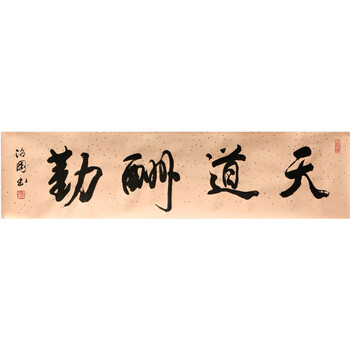 天道酬勤
治國书